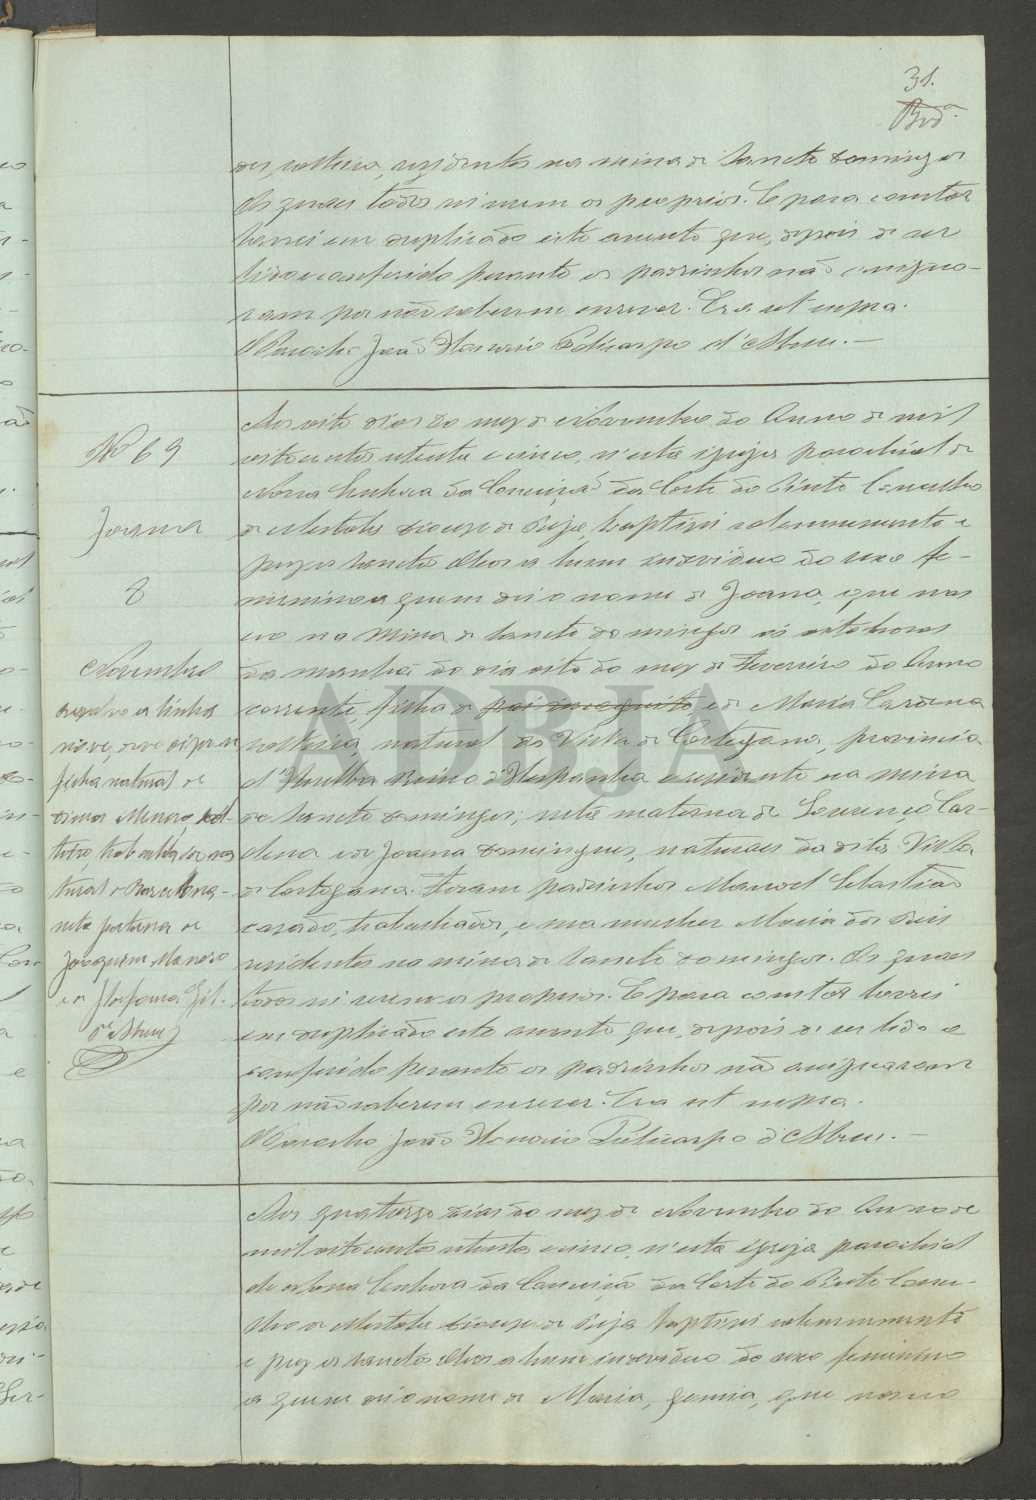 31.
dor, solteiro, residentes na mina de Sancto Domingos
Os quaes todos sei serem os proprios. E para constar
lavrei em duplicado este assento que, depois de ser
lido e conferido perante os padrinhos não assigna-
ram por não saberem escrever. Era ut supra.
O Parocho João Policarpo d'Abreu. —
Nº 69
Joanna
8
Novembro
resalvo a linha
nove, deve dizer se
filha natural de
Menaso, sol-
teiro, trabalhador na
tural de Barcelona -
neta paterna de
Joaquim Menaso
e de Gil.
d'Abreu
Aos oito dias do mez de Novembro do Anno de mil
oitocentos oitenta e cinco, n'esta igreja parochial de
Nossa Senhora da Conceição da Corte do Pinto Concelho
de Mertola diocese de Beja, baptisei solemnemente e
puz os Sanctos Oleos a hum individuo do sexo fe-
minino a quem dei o nome de Joana, que nas
ceo na Mina de Sancto Domingos ás oito horas
da manhã do dia oito do mez de Fevereiro do Anno
corrente, filha de pai incognito e de Maria Cardena
solteira, natural da Villa de Cortegana, provincia
d'Huelba Reino d'Hespanha e residente na mina
de Sancto Domingos; neta materna de Lourenço Car-
dena e de Joana Domingues, naturaes da dita Villa
de Cortegana. Foram padrinhos Manoel Sebastião
casado, trabalhador, e sua mulher Maria dos Reis
residentes na mina de Sancto Domingos. Os quaes
todos sei serem os proprios. E para constar lavrei
em duplicado este assento que, depois de ser lido e
conferido perante os padrinhos não assignaram
por não saberem escrever. Era ut supra.
O Parocho João Policarpo d'Abreu. —
Aos quatorze dias do mez de Novembro do Anno de
mil oitocentos oitenta e cinco, n'esta igreja parochial
de Nossa Senhora da Conceição da Corte do Pinto Conce-
lho de Mertola diocese de Beja baptisei solemnemente
e puz os Sanctos Oleos a hum individuo do sexo feminino
a quem dei o nome de Maria, gemia, que nasceo
ADBJA